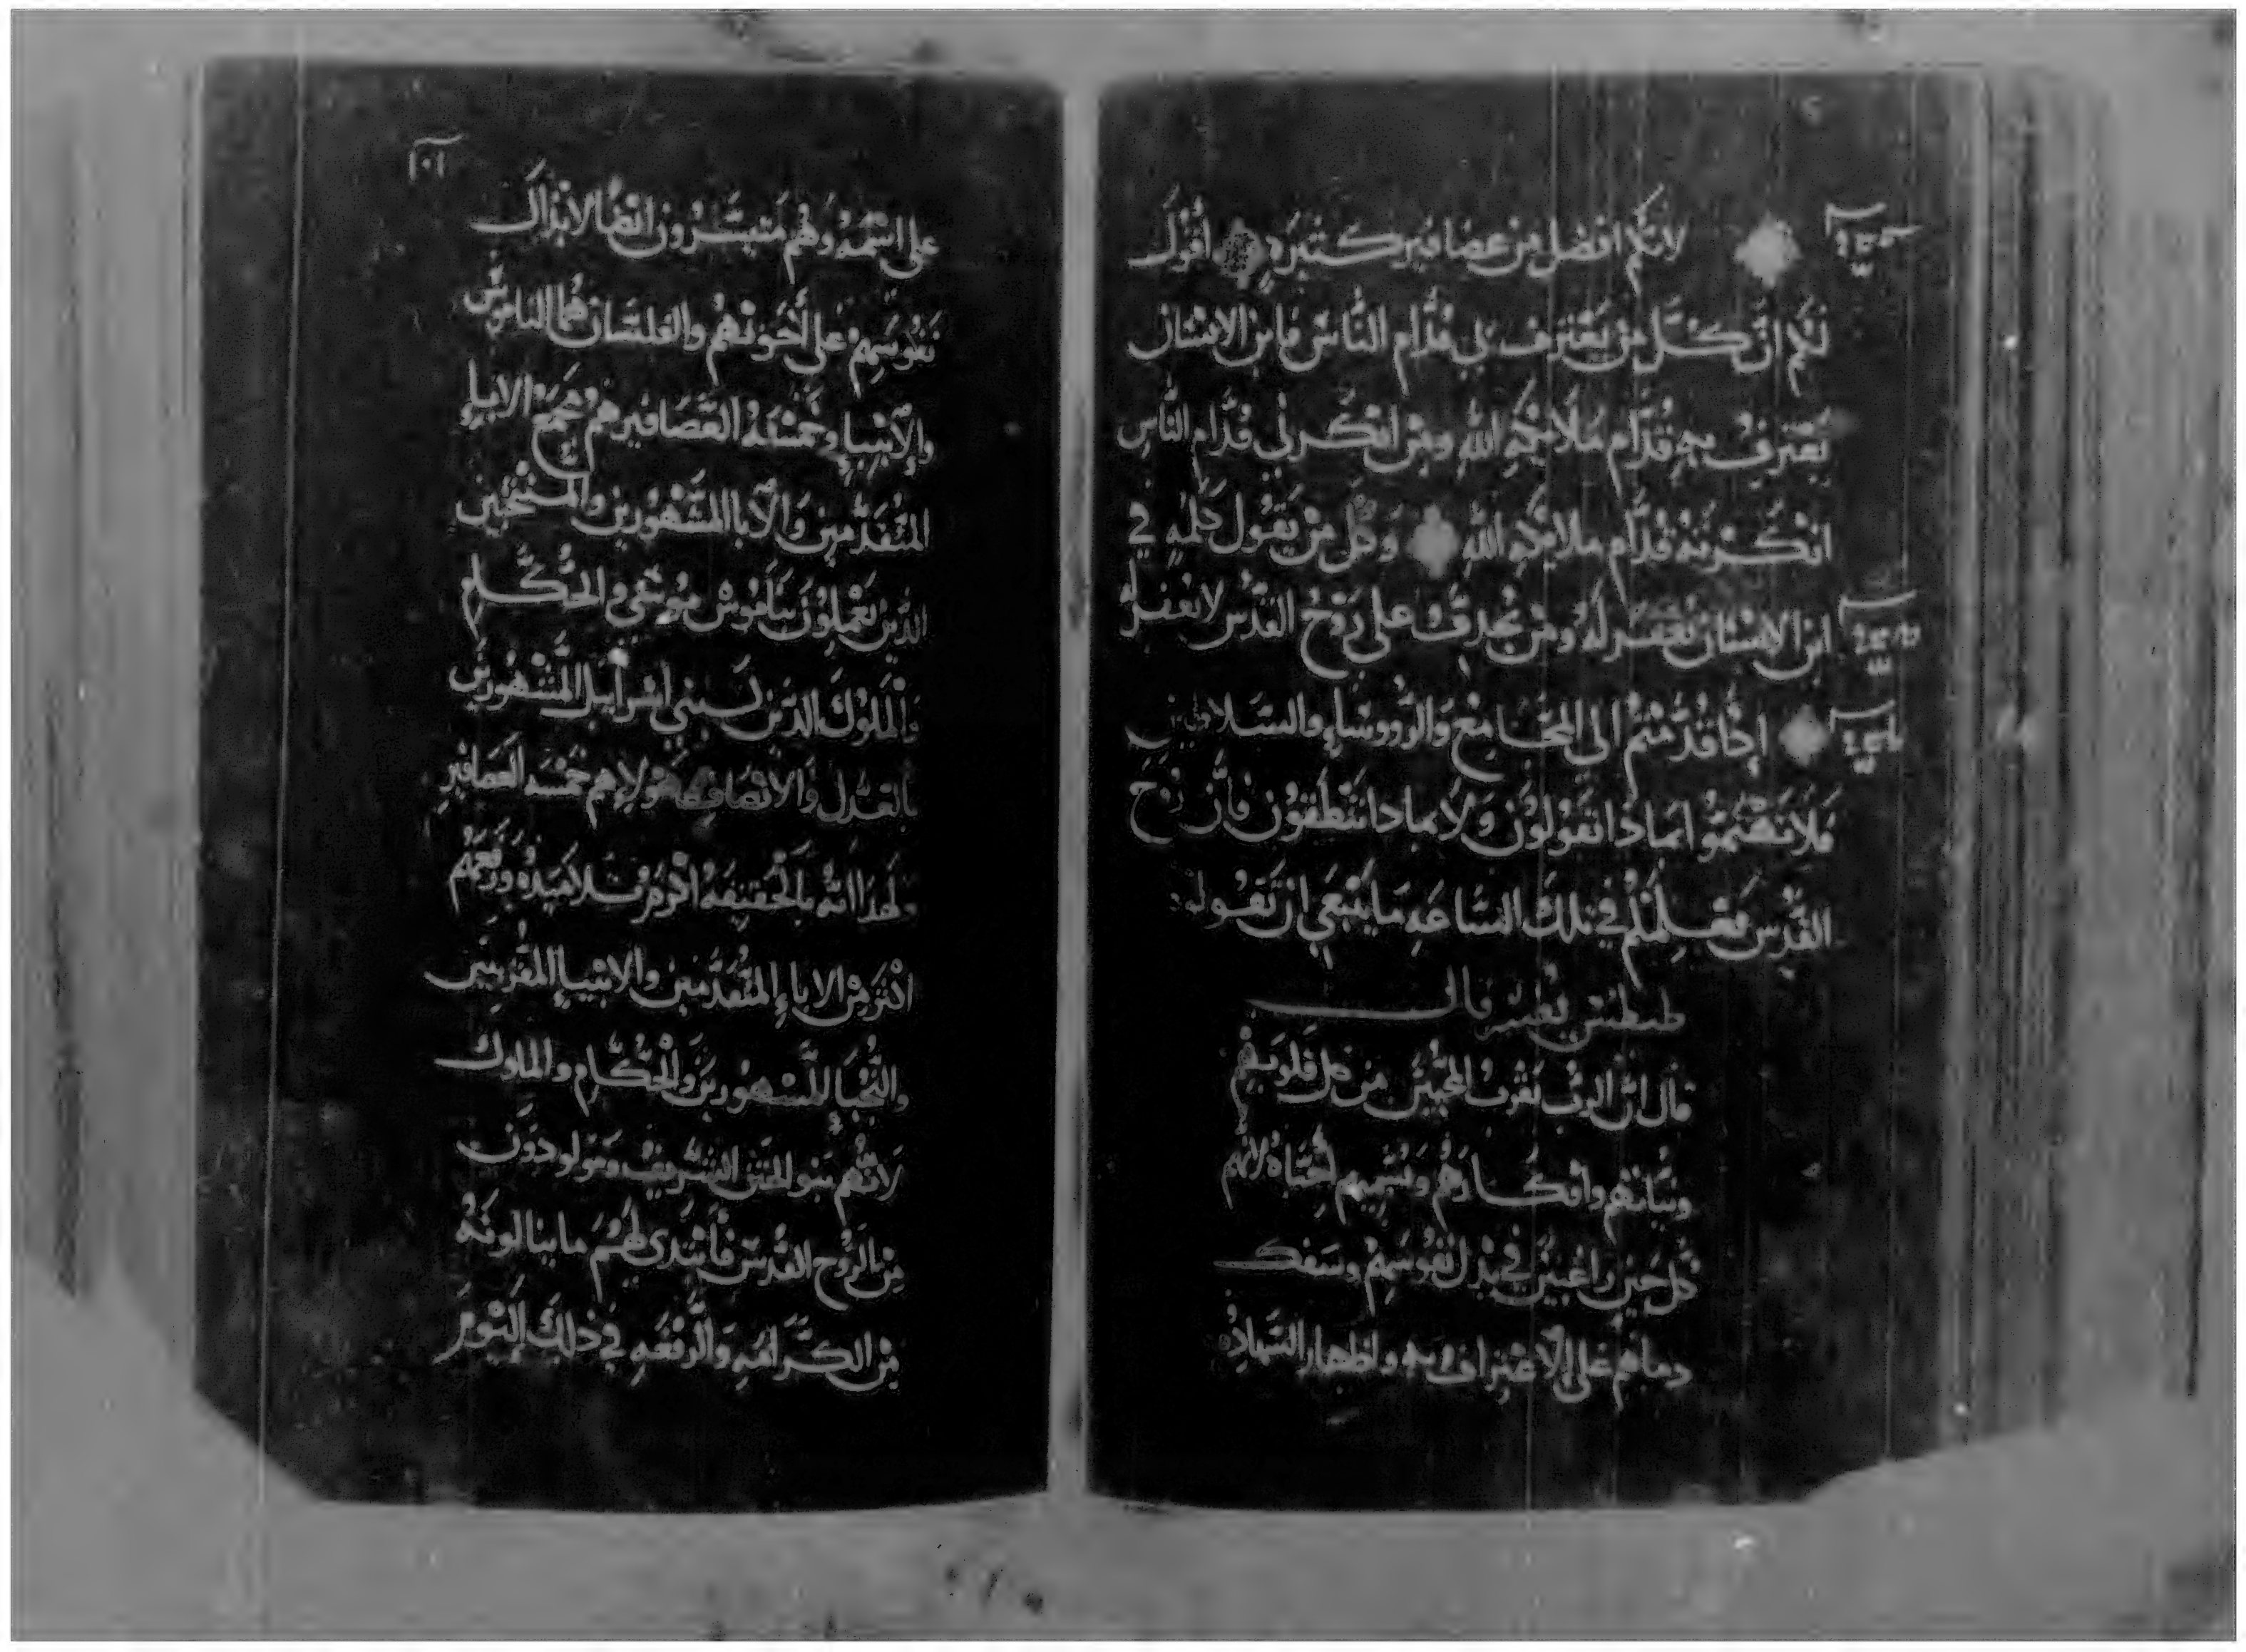 لانكم افضل من عصافير كتيره اقول
لكم ان كل من يعترف بي قدام الناس فابن الانسان
يعترف به قدام ملايكه الله ومن انكرني قدام الناس
انكرته قدام ملايكه الله وكل من يقول كلمه في
ابن الانسان يغفر له ومن يجدف على روح القدس لا يغفر له
إذا قدمتم الى المجامع والرووساء والسلاطين
فلا تهتموا بماذا تقولون ولا بماذا تنطقون فان روح
القدس يعلمكم في تلك الساعه ما ينبغي ان تقولوه
طيطس يفسر قال
قال ان الرب يقرب المحبين من كل قلوبهم
ونياتهم وافكارهم ويسميهم احباه لانهم
كل حين راغبين في بذل نفوسهم وسفك
دماهم على الاعتراف به واظهار الشهاده
١٠١
على اسمه وهم متبشرون ايضا لابذال
نفوسهم على أخوتهم والفلسان هما الناس
والانبياء وخمسة العصافير هم جميع الابياء
المتقدمين والآبا المشهورين والمنتخبين
الذين يعملون بناموس موسى والحكام
والملوك الذين لبني اسرايل المشهورين
بالعدل والانصاف فهولاء هم خمسه العصافير
ولهذا انه بالحقيقه اكرم تلاميذه ورفعهم
اكثر من الاباء المتقدمين والانبياء المقربين
والنجباء المشهورين والحكام والملوك
لانهم بنو الحق الشريف ومولودون
من الروح القدس فابتدى لهم ما ينالونه
من الكرامه والرفعه في ذلك اليوم